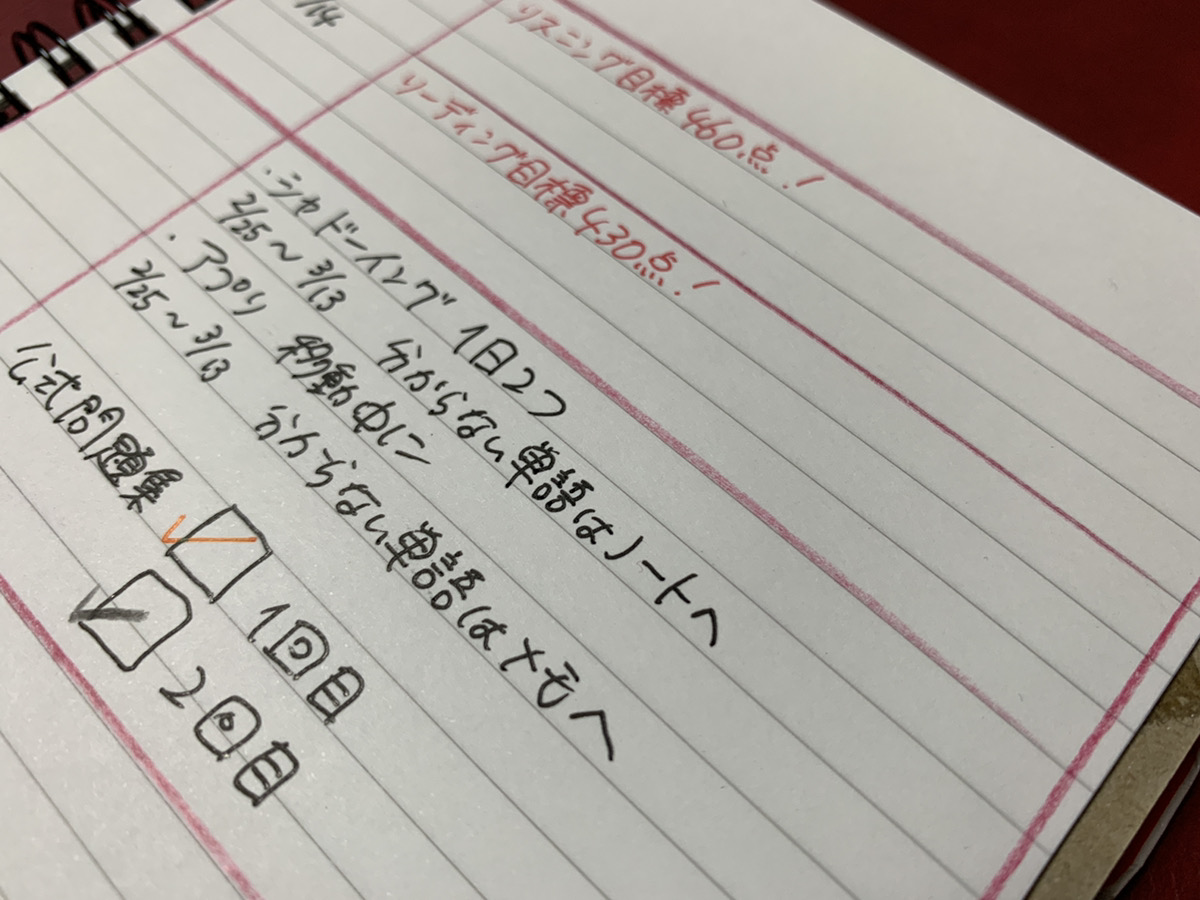 /14
リスニング目標460点!
リーディング目標430点!
・シャドーイング 1日2つ
2/25〜3/13 分からない単語はノートへ
・アプリ 移動中に
2/25〜3/13 分からない単語はメモへ
公式問題集 1回目
2回目